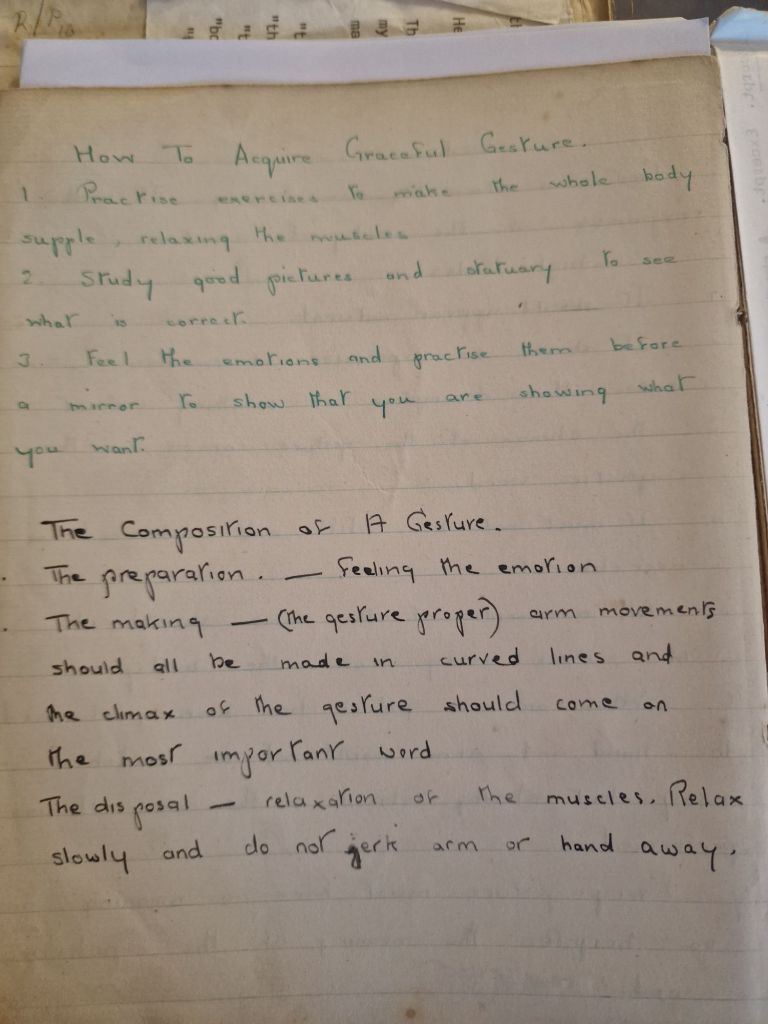 R/P
"t
"bo
"t
"th
"t
ma
my
Th
He
How To Acquire Graceful Gesture.
1. Practise exercises to make the whole body
supple, relaxing the muscles
2. Study good pictures and statuary to see
what is correct.
3. Feel the emotions and practise them before
a mirror to show that you are showing what
you want.
The Composition of A Gesture.
The preparation. — Feeling the emotion
The making — (the gesture proper) arm movements
should all be made in curved lines and
the climax of the gesture should come on
the most important word
The disposal — relaxation of the muscles. Relax
slowly and do not jerk arm or hand away.